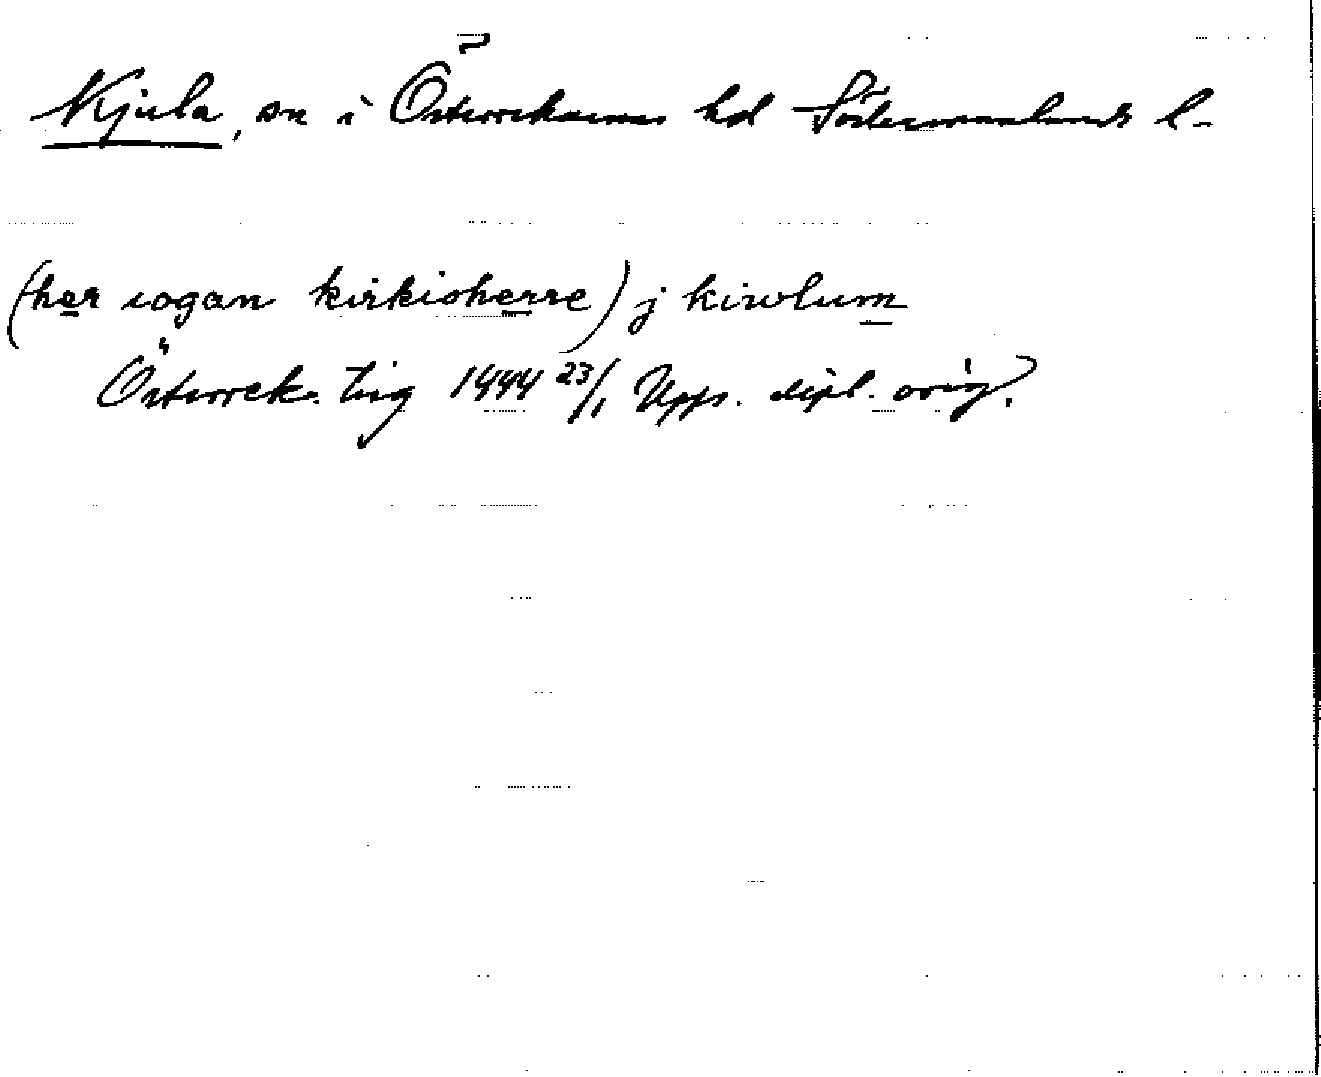 Kjula, sn i Österrekarnes hd Södermanlands l.
(her iogan kirkioherre) j kiwlum
Österrek. ting 1444 23/1 Upps. dipl. orig.